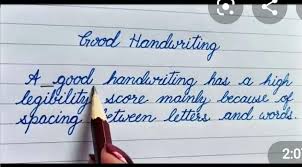 Good Handwriting
A good handwriting has a high
legibility score mainly because of
spacing between letters and words.
2:0